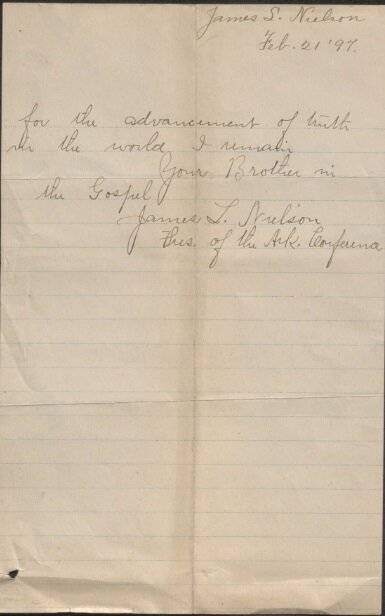 James S. Nielson
Feb. 21 '97.
for the advancement of truth
in the world I remain
Your Brother in
the Gospel
James L. Nielson
Pres. of the Ark. Conference